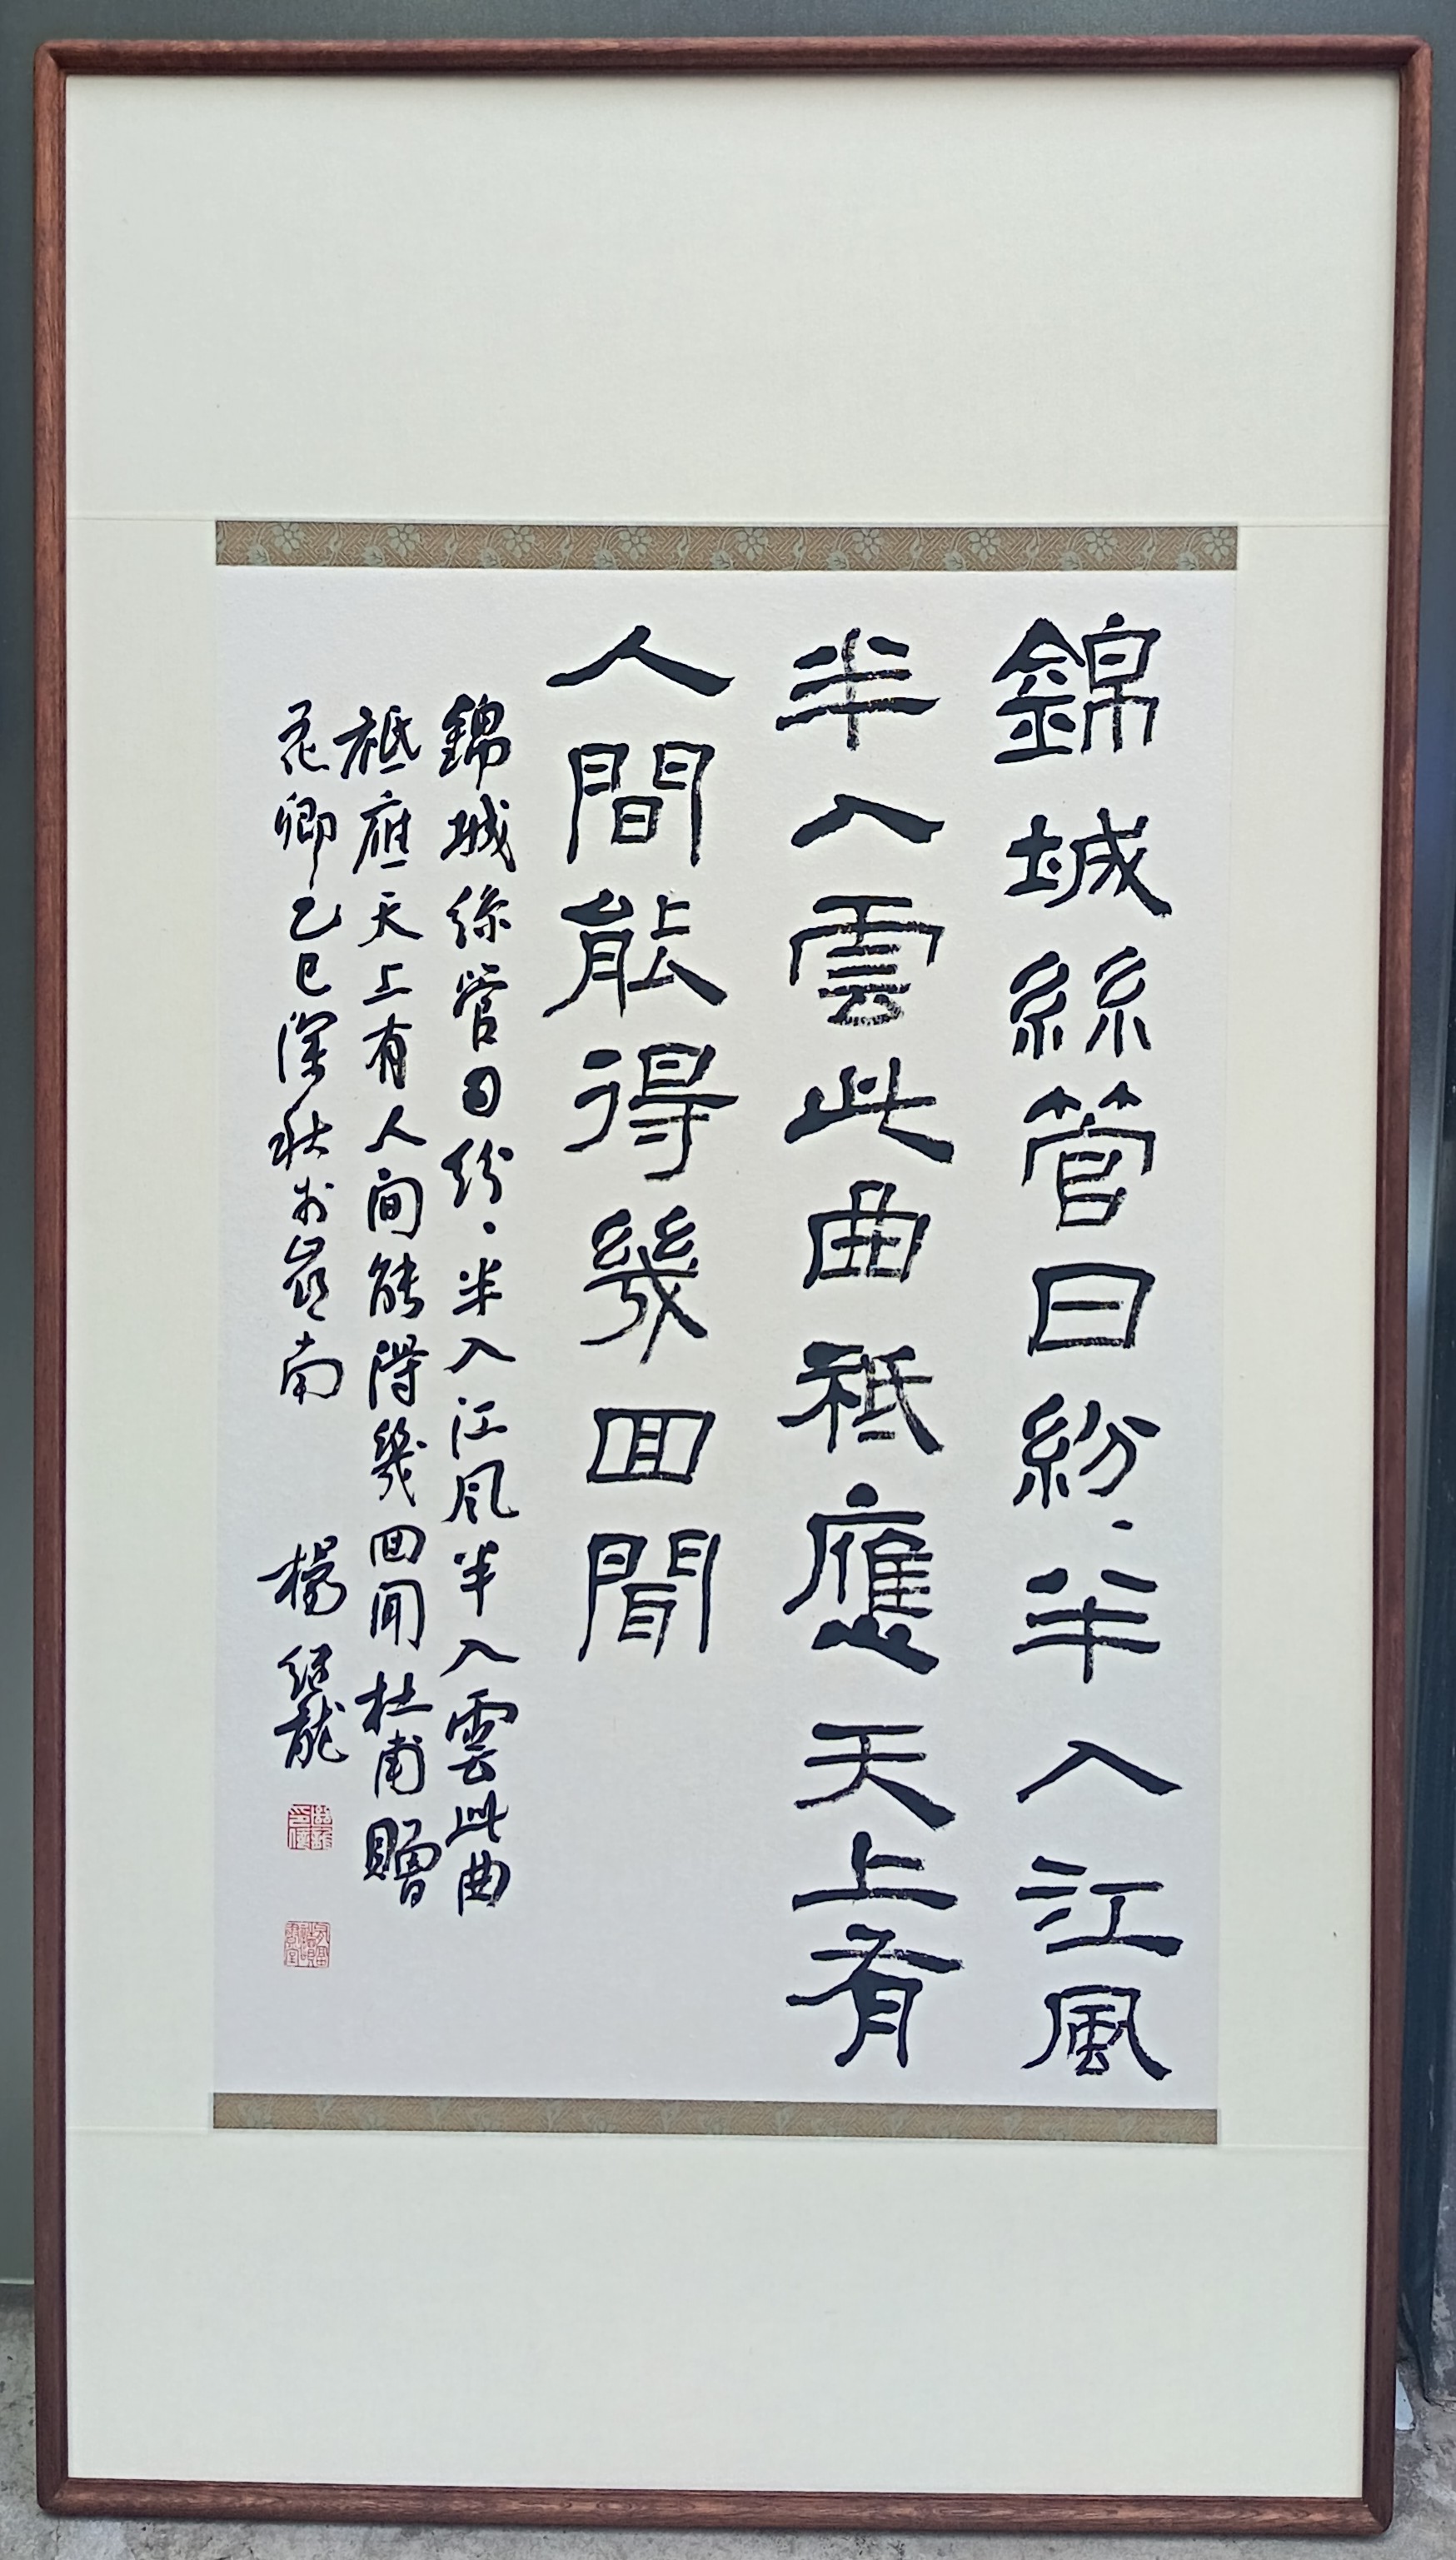 錦城絲管日紛、半入江風
半入雲此曲祗應天上有
人間能得幾回聞
錦城絲管日紛、半入江风半入雲此曲
祗應天上有人间能得幾回闻杜甫贈
花卿乙巳深秋於嶺南 楊紹龍